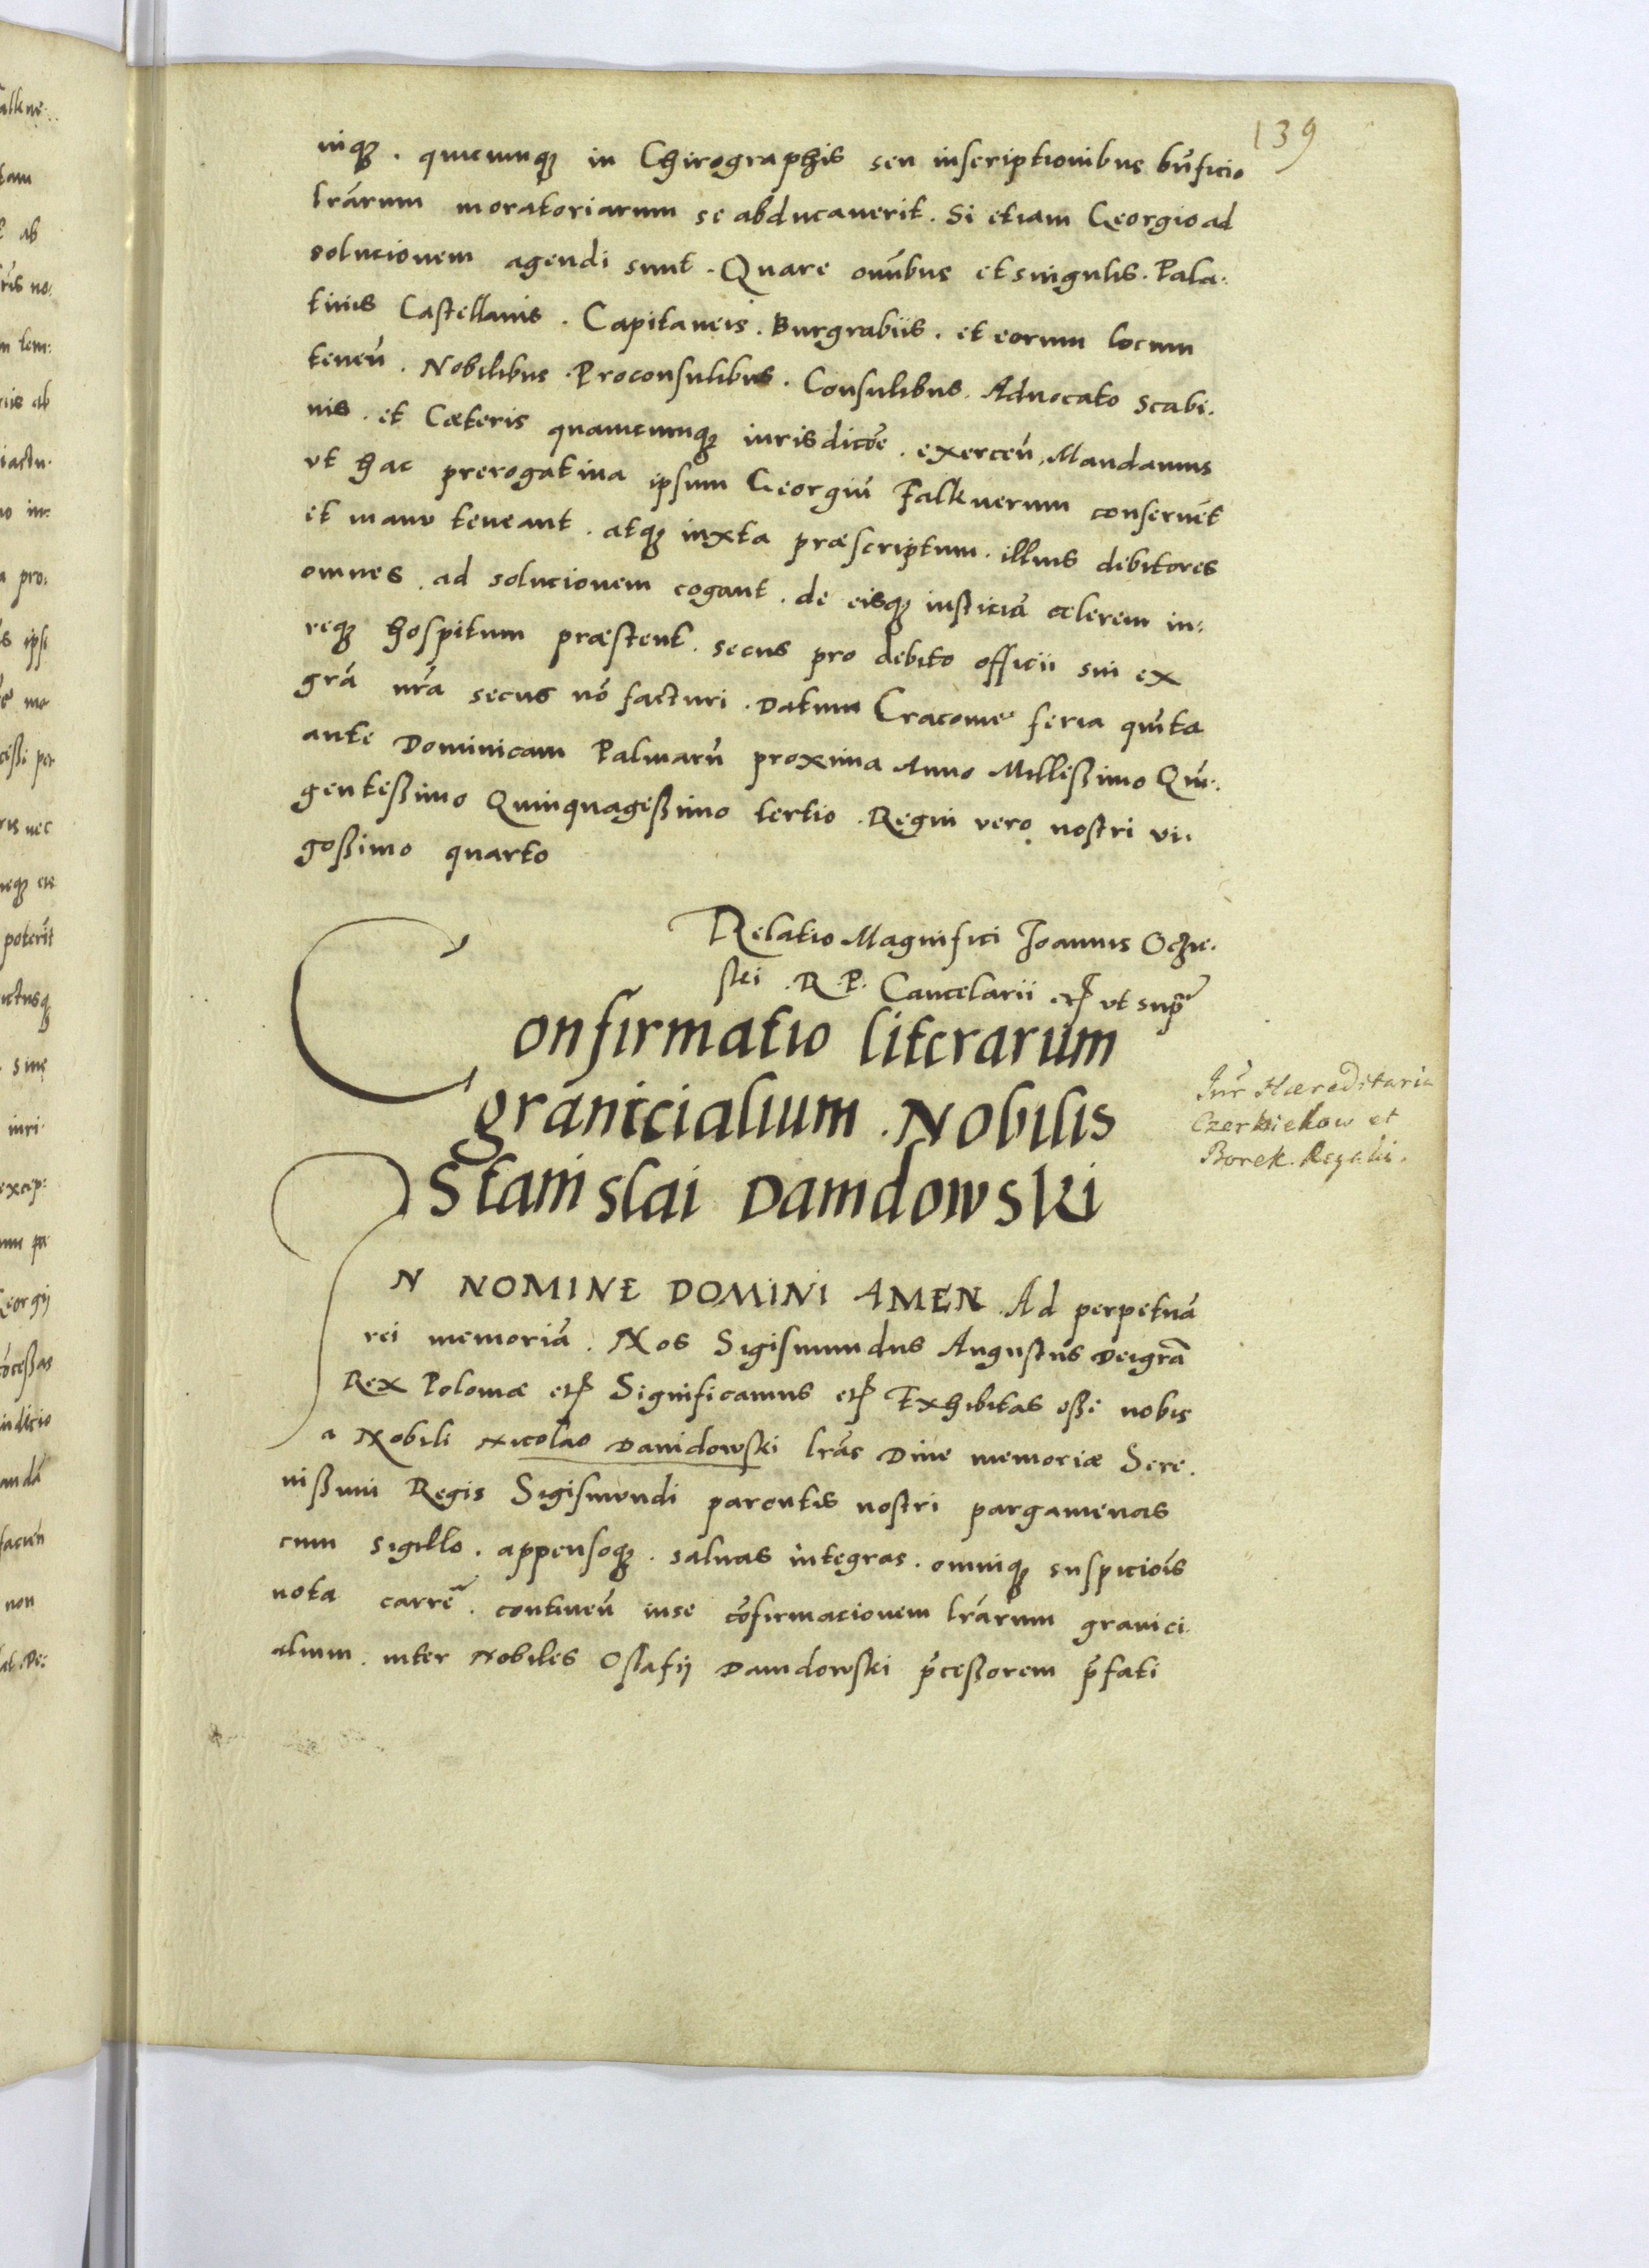 139
niqꝫ . quicumqꝫ in Chirographis seu inscriptionibus bn̄ficio
lrārum moratoriarum se abdicaverit . Si etiam Georgio ad
solucionem agendi sunt . Quare omībus et singulis . Pala.
tinis Castellanis . Capitaneis . Burgrabiis . et eorum locum
tenen̄ . Nobilibus . Proconsulibus . Consulibus . Advocato Scabi.
nis . et Cæteris quamcumqꝫ iurisdictōe . exercen̄ . Mandamus
ut hac prerogativa ipsum Georgiū Falknerum conservēt
et manu teneant . atqꝫ iuxta præscriptum . illius debitores
omnes . ad solucionem cogant . de eisqꝫ iusticiā celerem iu:
reqꝫ hospitum præstent . secus pro debito officii sui ex
grā nrā secus nō facturi . Datum Cracoviæ feria quīta
ante Dominicam Palmarū proxima Anno Millessimo Quī.
gentessimo Quinquagessimo tertio . Regni vero nostri vi.
gossimo quarto
Relatio Magnifici Joannis Oczie.
ski . R. P. Cancelarii etc ut supr̄
Confirmatio literarum
granicialium . Nobilis
Stanislai Damdowski
Jur Hæreditaria
Czerkiekow et
Borek. Regalii.
IN NOMINE DOMINI AMEN . Ad perpetuā
rei memoriā . Nos Sigismundus Augustus Dei grā
Rex Poloniæ etc Significamus etc Exhibitas esse nobis
a Nobili Nicolao Davidowski lrās Dive memoriæ Sere.
nissimi Regis Sigismundi parentis nostri pargamenas
cum sigillo . appensoqꝫ . salvas integras . omniqꝫ suspiciōis
nota carrē . continen̄ in se cōfirmacionem lrārum granici.
alium . inter Nobiles Ostafij Damdowski p̄cessorem p̄fati